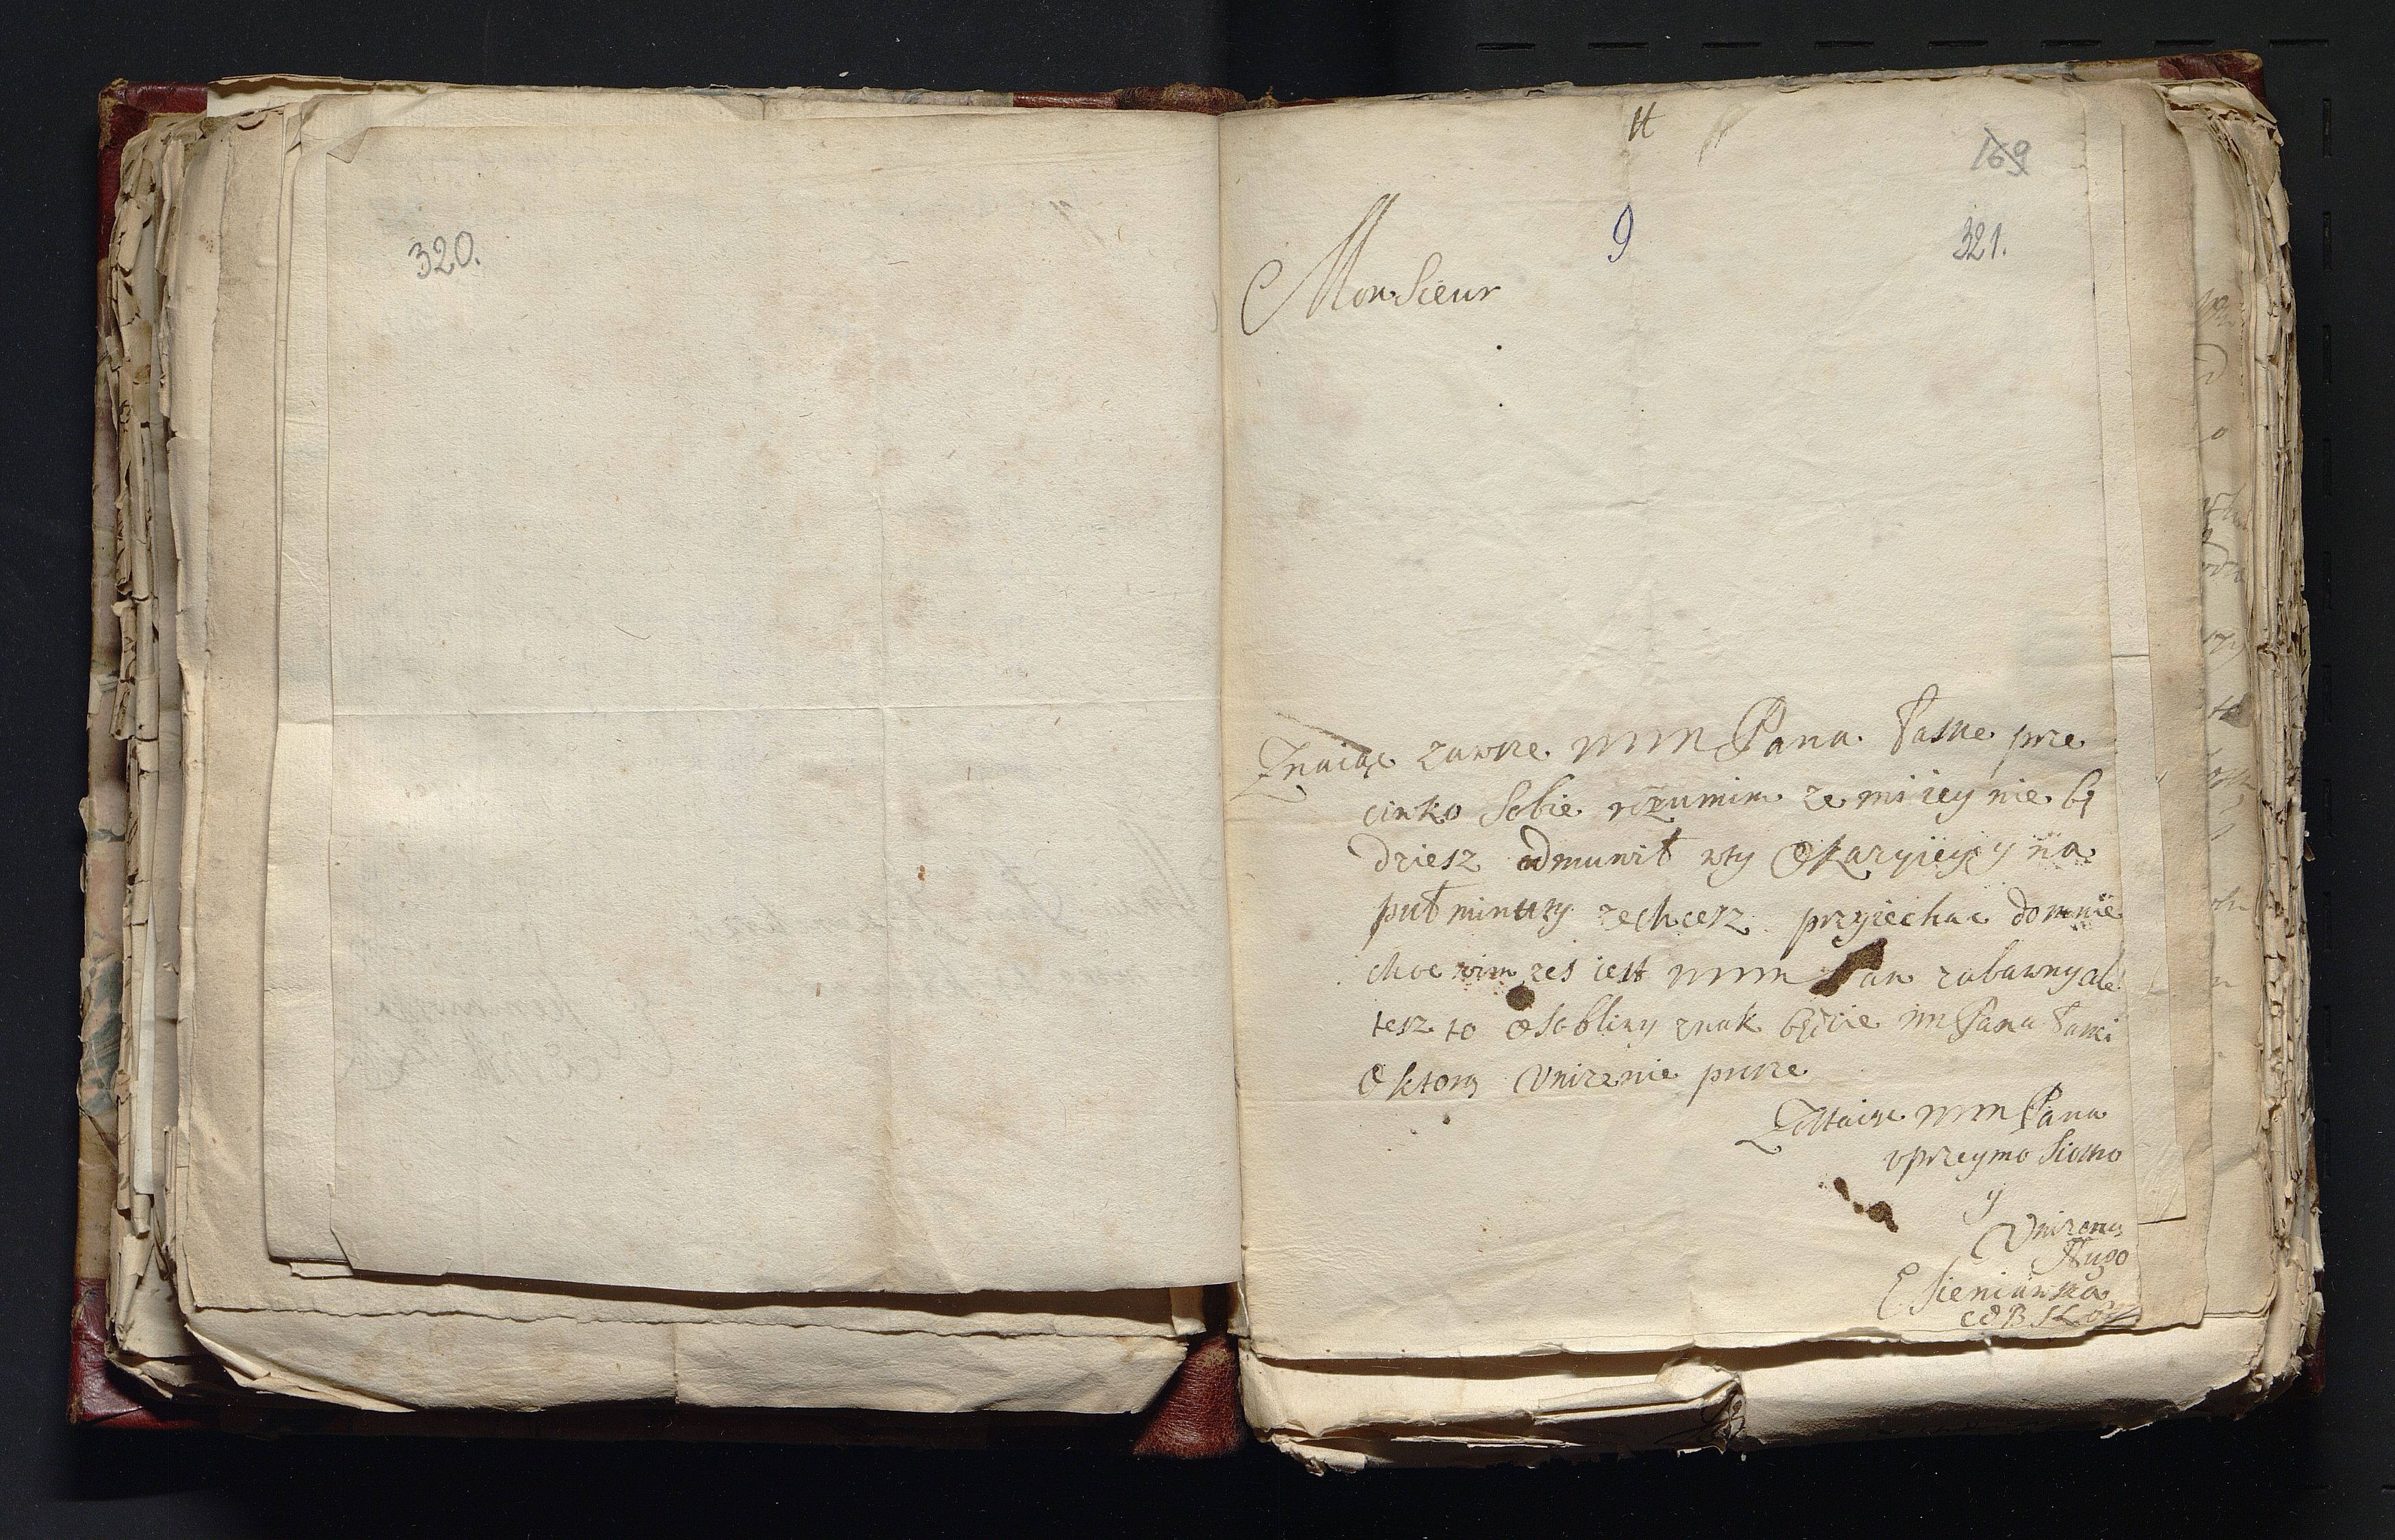 320.
tt
169
9
321.
Monsieur
Znaiąc zawsze mm Pana łaske prze
ciwko Sobie rozumim ze mi iey nie bę
dziesz odmuwił wty Okazyiey y na
puł minuty zechcesz przyiechac domnie
choc wim zes iest mm Pan zabawny ale
tesz to osobliwy znak będzie m Pana łaski
O ktorą Vnizenie prosze
Zostaiąc mm Pana
vprzeymo
y
Vnizoną
Sługo
E Sieniawska